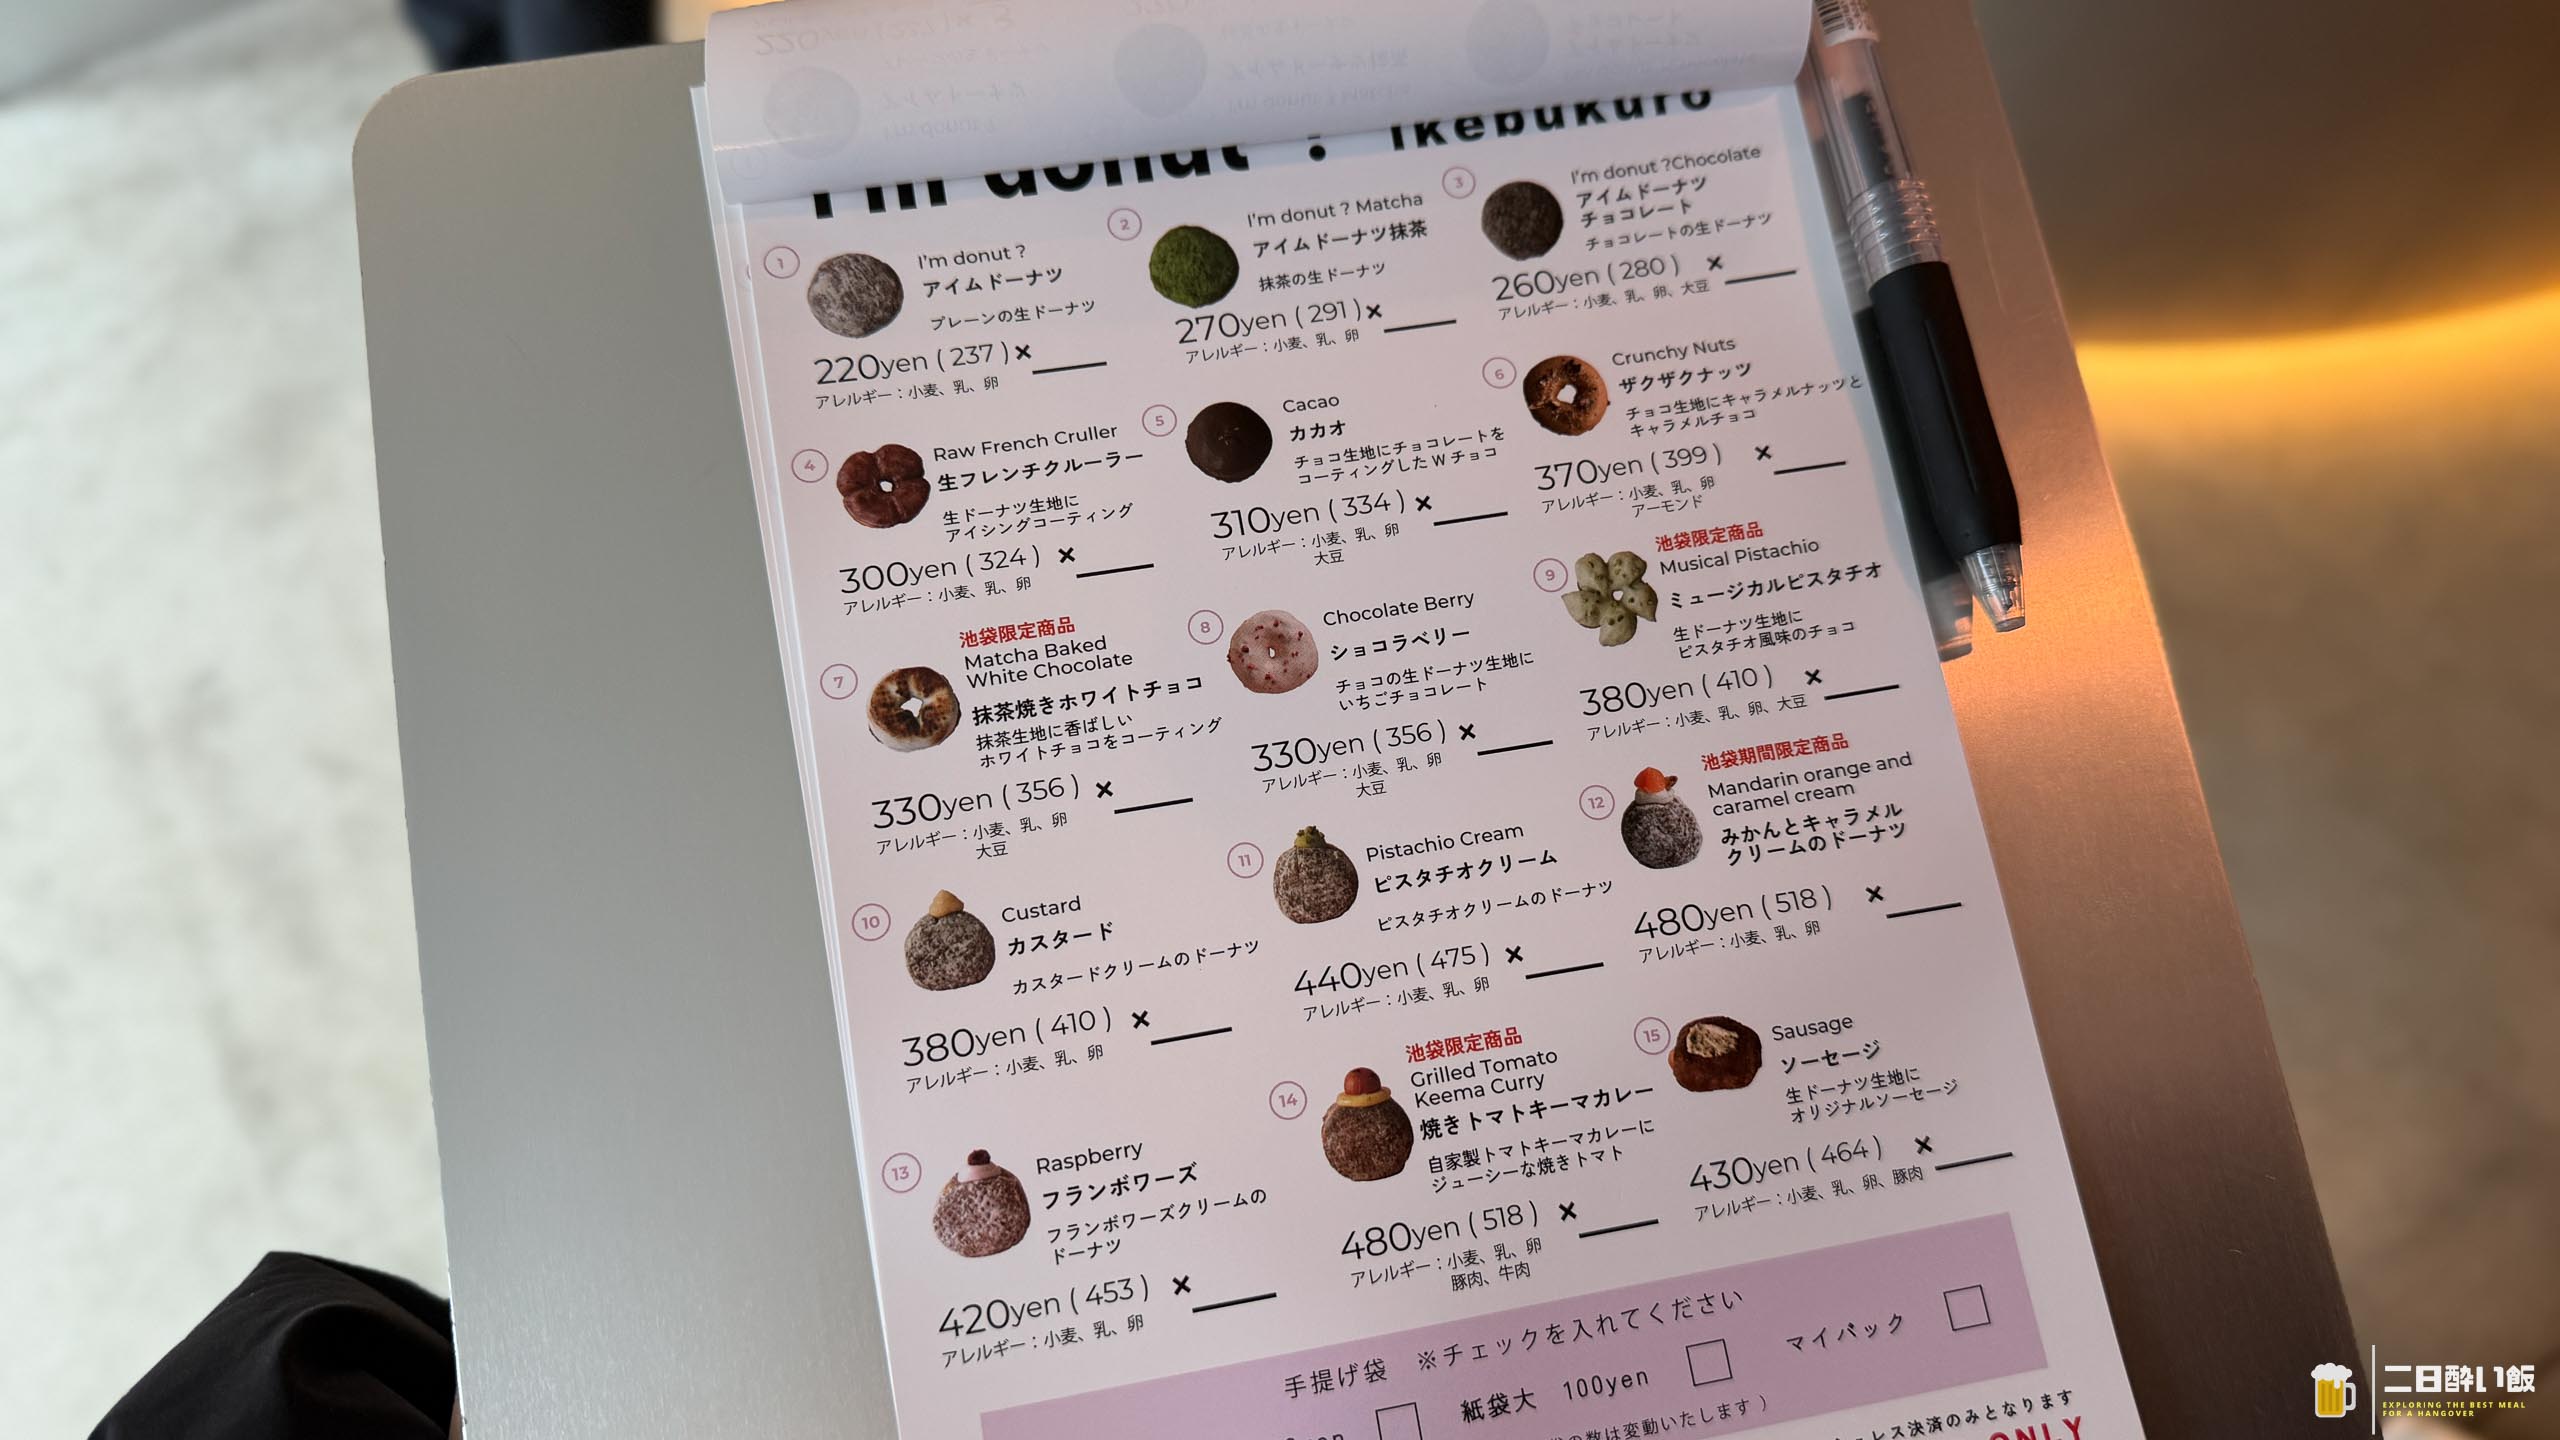 I'm donut ? Ikebukuro
1
I'm donut ?
アイムドーナツ
プレーンの生ドーナツ
220yen ( 237 ) ×
アレルギー：小麦、乳、卵
2
I'm donut ? Matcha
アイムドーナツ抹茶
抹茶の生ドーナツ
270yen ( 291 ) ×
アレルギー：小麦、乳、卵
3
I'm donut ?Chocolate
アイムドーナツ
チョコレート
チョコレートの生ドーナツ
260yen ( 280 ) ×
アレルギー：小麦、乳、卵、大豆
4
Raw French Cruller
生フレンチクルーラー
生ドーナツ生地に
アイシングコーティング
300yen ( 324 ) ×
アレルギー：小麦、乳、卵
5
Cacao
カカオ
チョコ生地にチョコレートを
コーティングした W チョコ
310yen ( 334 ) ×
アレルギー：小麦、乳、卵
大豆
6
Crunchy Nuts
ザクザクナッツ
チョコ生地にキャラメルナッツと
キャラメルチョコ
370yen ( 399 ) ×
アレルギー：小麦、乳、卵
アーモンド
7
池袋限定商品
Matcha Baked
White Chocolate
抹茶焼きホワイトチョコ
抹茶生地に香ばしい
ホワイトチョコをコーティング
330yen ( 356 ) ×
アレルギー：小麦、乳、卵
大豆
8
Chocolate Berry
ショコラベリー
チョコの生ドーナツ生地に
いちごチョコレート
330yen ( 356 ) ×
アレルギー：小麦、乳、卵
大豆
9
池袋限定商品
Musical Pistachio
ミュージカルピスタチオ
生ドーナツ生地に
ピスタチオ風味のチョコ
380yen ( 410 ) ×
アレルギー：小麦、乳、卵、大豆
10
Custard
カスタード
カスタードクリームのドーナツ
380yen ( 410 ) ×
アレルギー：小麦、乳、卵
11
Pistachio Cream
ピスタチオクリーム
ピスタチオクリームのドーナツ
440yen ( 475 ) ×
アレルギー：小麦、乳、卵
12
池袋期間限定商品
Mandarin orange and
caramel cream
みかんとキャラメル
クリームのドーナツ
480yen ( 518 ) ×
アレルギー：小麦、乳、卵
13
Raspberry
フランボワーズ
フランボワーズクリームの
ドーナツ
420yen ( 453 ) ×
アレルギー：小麦、乳、卵
14
池袋限定商品
Grilled Tomato
Keema Curry
焼きトマトキーマカレー
自家製トマトキーマカレーに
ジューシーな焼きトマト
480yen ( 518 ) ×
アレルギー：小麦、乳、卵
豚肉、牛肉
15
Sausage
ソーセージ
生ドーナツ生地に
オリジナルソーセージ
430yen ( 464 ) ×
アレルギー：小麦、乳、卵、豚肉
手提げ袋 ※チェックを入れてください
紙袋大 100yen
マイバック
の数は変動いたします ）
レス決済のみとなります
ONLY
二日酔い飯
EXPLORING THE BEST MEAL
FOR A HANGOVER